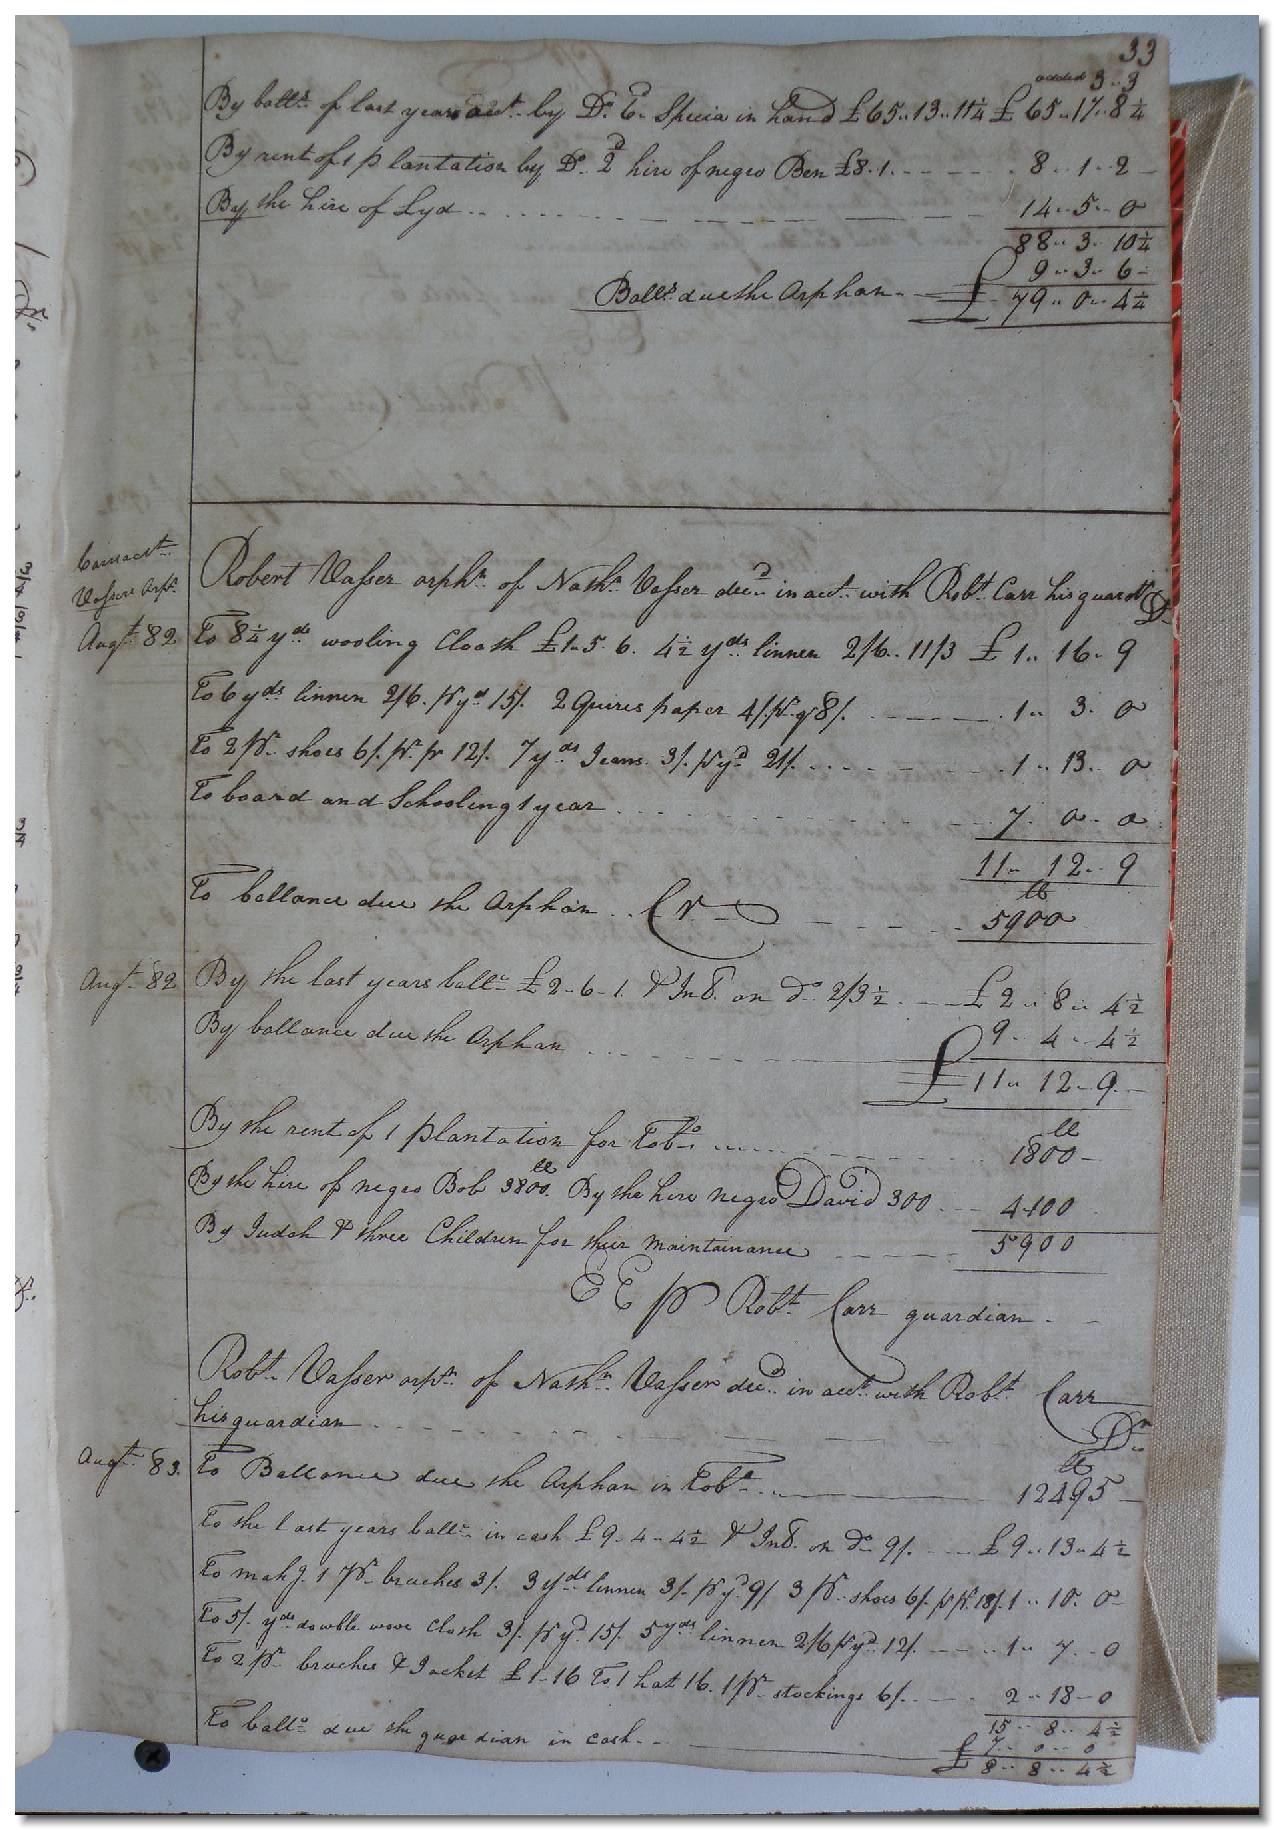 33
added 3..3
By ball.ce of last years acct. by Do. E. Specia in hand £65..13..11¼ £ 65..17..8¼
By rent of 1 plantation by Do. hire of negro Ben £8.1. 8..1..2
By the hire of Lyd 14..5..0
88..3..10¼
9..3..6
Ball.ce due the Orphan £ 79..0..4¼
Carr acct.
Vasser Orpn.
Robert Vasser orphn. of Nathn. Vasser decd. in acct. with Robt. Carr his guardn. Dr.
Augt. 82 To 8¼ yds wooling Cloath £1.5.6. 4½ yds linnen 2/6..11/3 £ 1..16..9
To 6 yds linnen 2/6. pr yd 15/. 2 Quires paper 4/. pr. q 8/. 1..3..0
To 2 pr. shoes 6/. pr. pr 12/. 7 yds Jeans 3/. pr yd 21/. 1..13..0
To board and Schooling 1 year 7..0..0
11..12..9
ll
To ballance due the Orphan 5900
Cr
Augt. 82 By the last years ball.ce £2-6-1. & Int. on do. 2/3½ £2..8..4½
By ballance due the Orphan 9..4..4½
£11..12..9
ll
By the rent of 1 plantation for Tobo. 1800
By the hire of negro Bob 3800 ll. By the hire negro David 300 4100
By Judah & three Children for their maintainance 5900
E E pr Robt. Carr guardian
Robt. Vasser orpn. of Nathn. Vasser decd. in acct. with Robt. Carr
his guardian Dr.
ll
Augt. 83. To Ballance due the Orphan in Tobo. 12495
To the last years ball.ce in cash £9-4-4½ & Int. on do. 9/. £9..13..4½
To makg. 1 pr. breaches 3/. 3 yds linnen 3/. pr yd 9/ 3 pr. shoes 6/. pr pr. 18/. 1..10..0
To 5/. yds double wove Cloth 3/. pr yd. 15/. 5 yds linnen 2/6 pr yd. 12/. 1..7..0
To 2 pr. breaches & Jacket £1-16 To 1 hat 16. 1 pr. stockings 6/. 2..18..0
15..8..4½
7..0..0
To ball.ce due the guardian in cash £ 8..8..4½